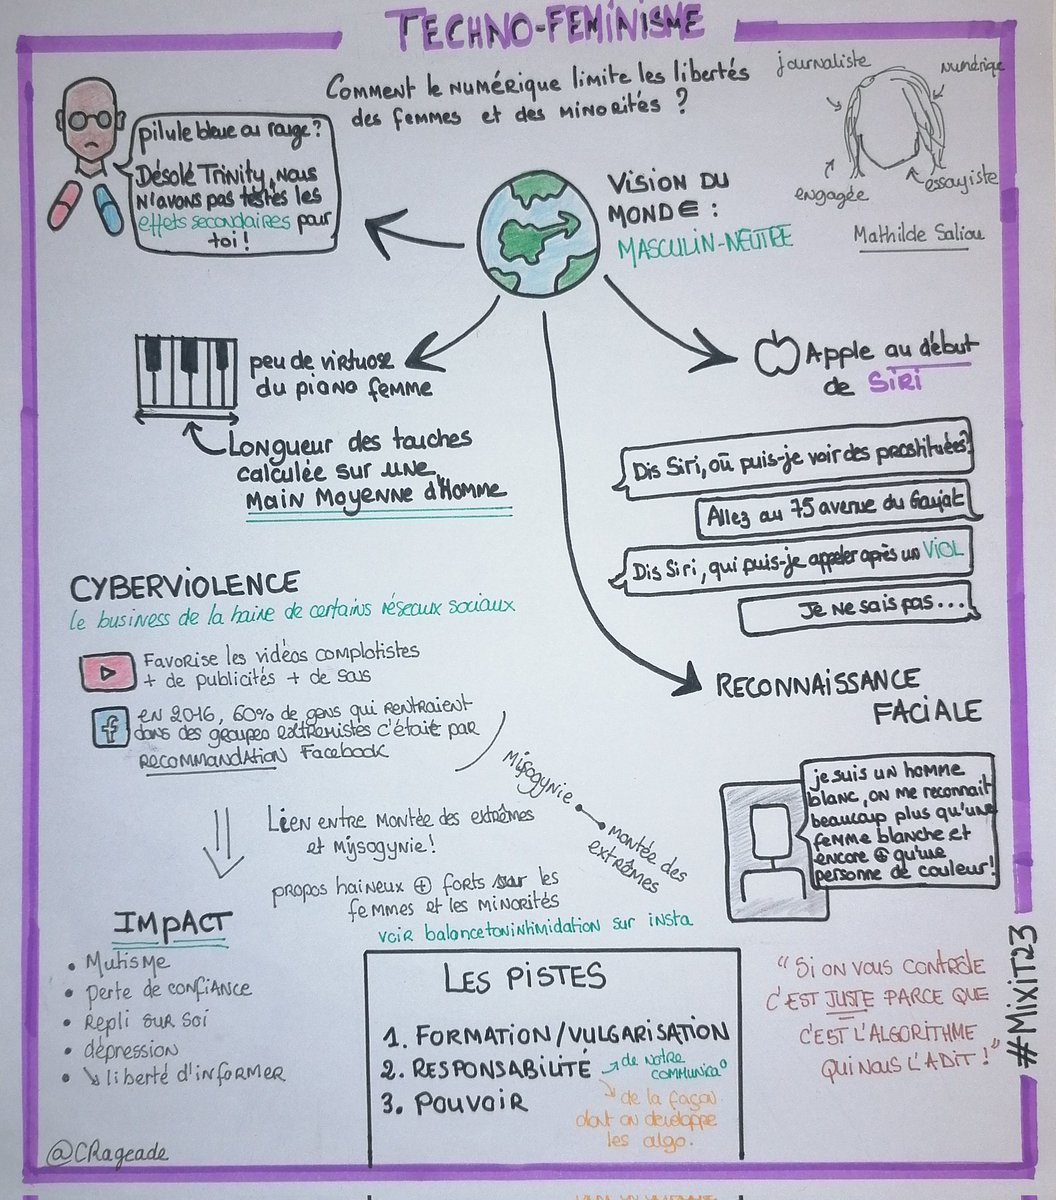 TECHNO-FEMINISME
Comment le numérique limite les libertés
des femmes et des minorités ?
journaliste
numérique
engagée
essayiste
Mathilde Saliou
pilule bleue ou rouge?
Désolé Trinity, nous
n'avons pas testés les
effets secondaires pour
toi !
Vision du
monde :
Masculin-neutre
peu de virtuose
du piano femme
Longueur des touches
calculée sur une
main moyenne d'homme
Apple au début
de Siri
Dis Siri, où puis-je voir des prostituées?
Allez au 75 avenue du Goujat
Dis Siri, qui puis-je appeler après un VIOL
Je ne sais pas...
CYBERVIOLENCE
Le business de la haine de certains réseaux sociaux
Favorise les vidéos complotistes
+ de publicités + de sous
en 2016, 60% de gens qui rentraient
dans des groupes extrémistes c'était par
recommandation Facebook
Misogynie
montée des
extrêmes
Lien entre montée des extrêmes
et mysogynie!
propos haineux + forts sur les
femmes et les minorités
voir balancetonintimidation sur insta
RECONNAISSANCE
FACIALE
je suis un homme
blanc, on me reconnait
beaucoup plus qu'une
femme blanche et
encore + qu'une
personne de couleur!
IMPACT
• Mutisme
• perte de confiance
• Repli sur soi
• dépression
• ↘ liberté d'informer
LES PISTES
1. FORMATION/VULGARISATION
2. RESPONSABILITÉ → de notre
communica°
3. POUVOIR
↘ de la façon
dont on développe
les algo.
"Si on vous contrôle
c'est juste parce que
c'est l'algorithme
qui nous l'a dit !"
#MixiT23
@CRageade